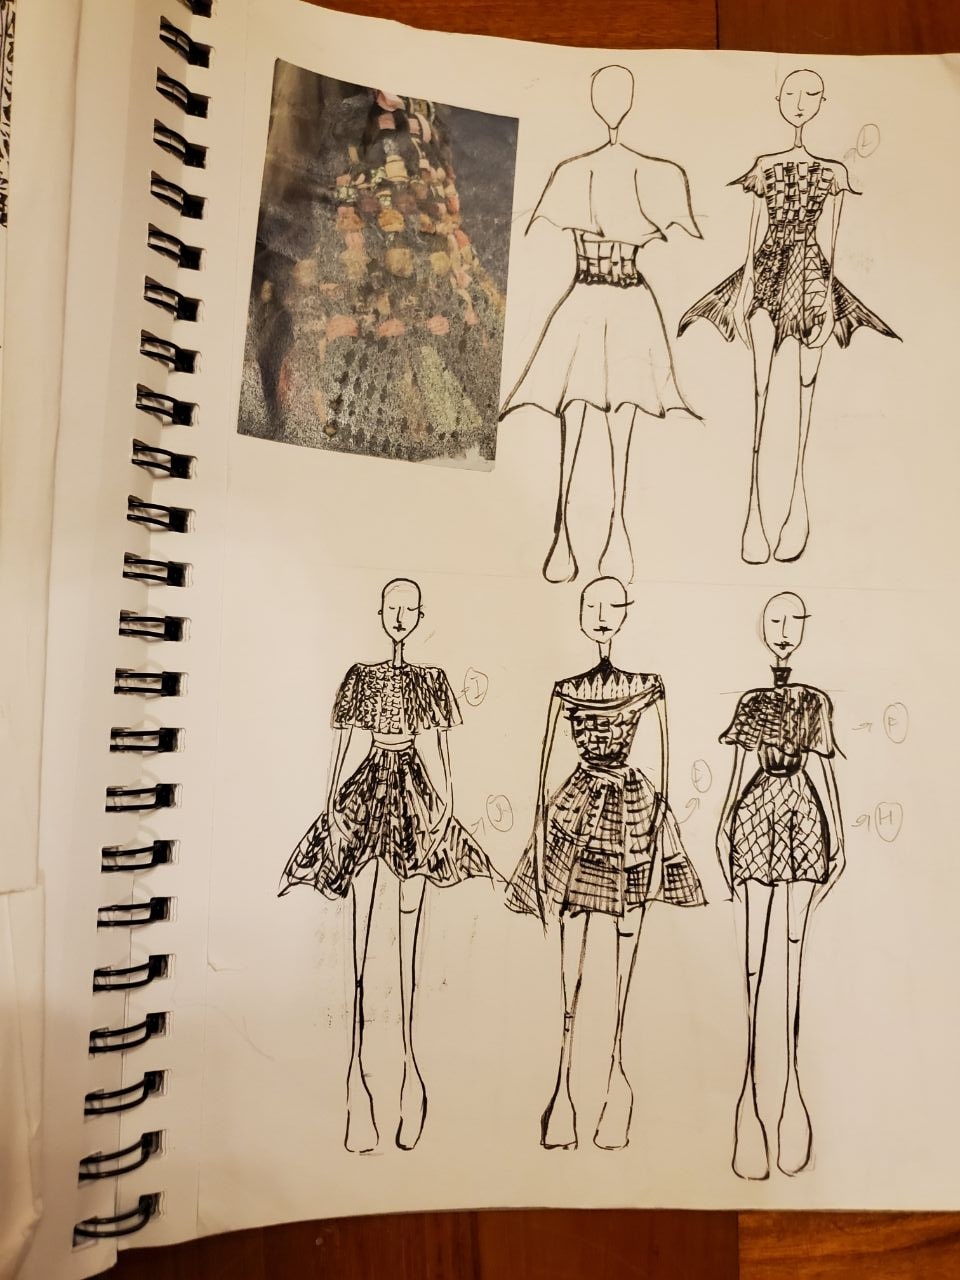 L
I
J
F
H